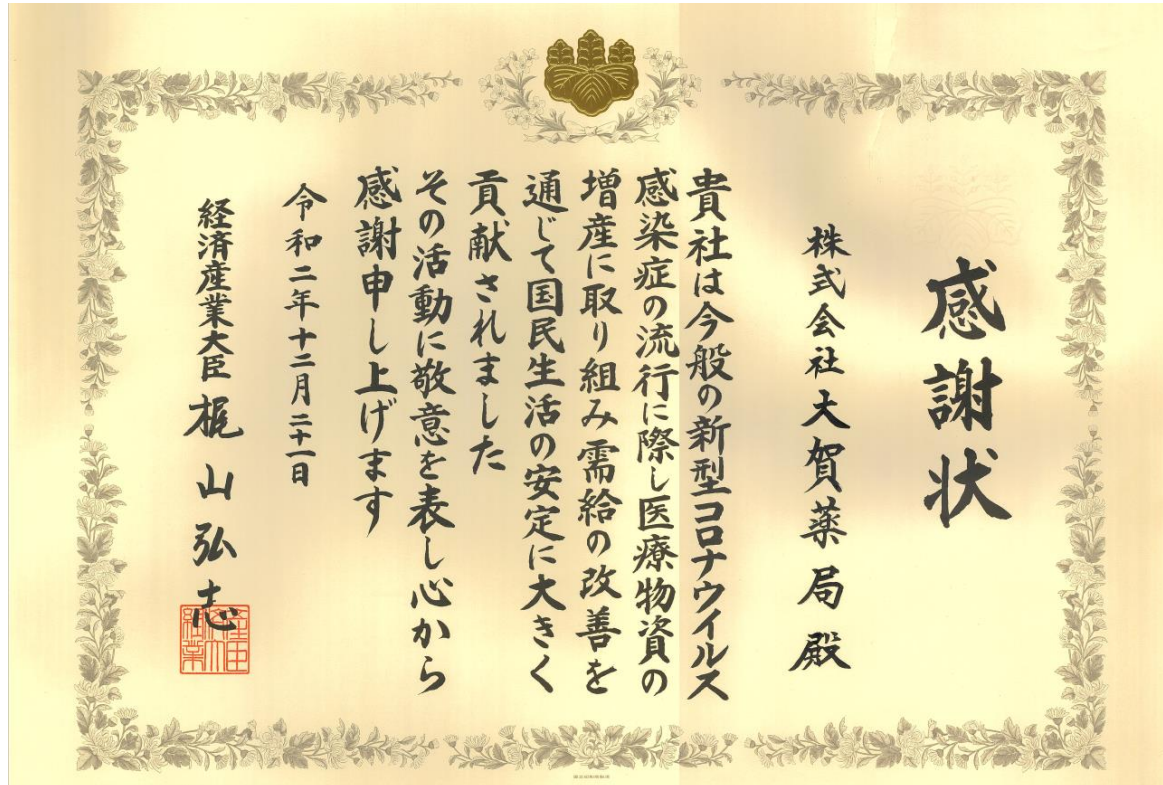 感謝状
株式会社大賀薬局殿
貴社は今般の新型コロナウイルス
感染症の流行に際し医療物資の
増産に取り組み需給の改善を
通じて国民生活の安定に大きく
貢献されました
その活動に敬意を表し心から
感謝申し上げます
令和二年十二月二十一日
経済産業大臣梶山弘志